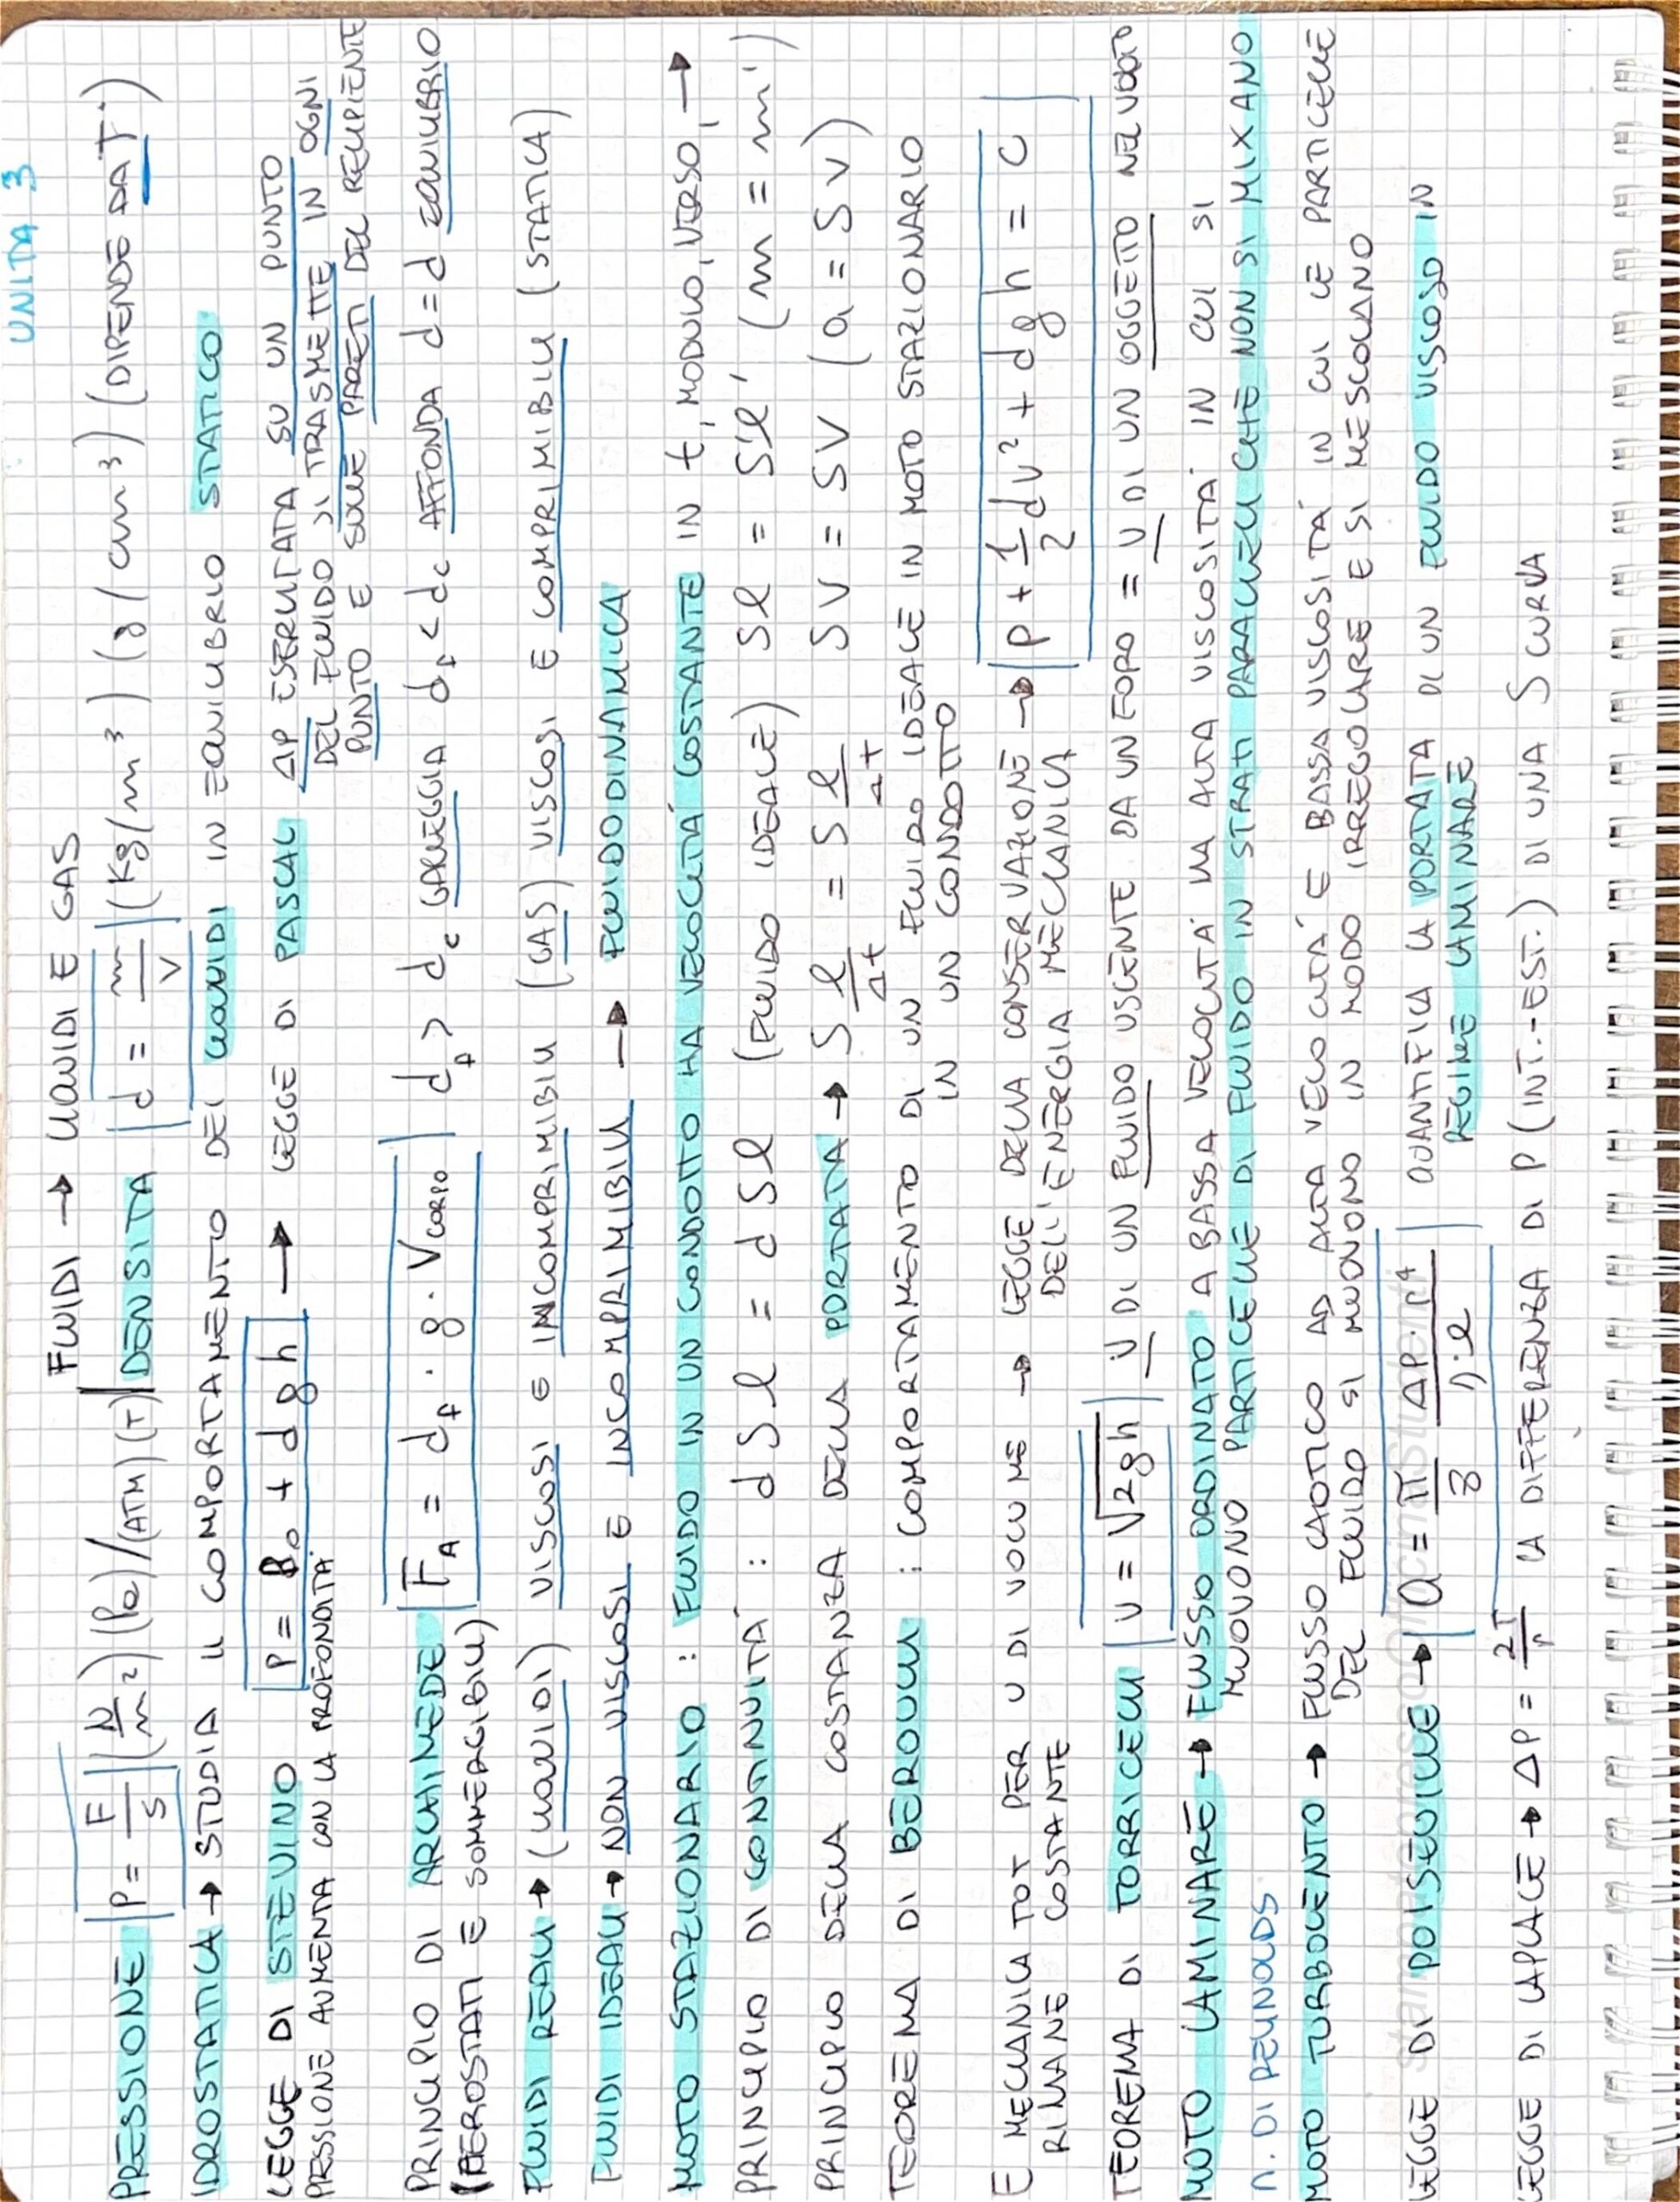 UNITÀ 3
FLUIDI → LIQUIDI E GAS
PRESSIONE P = F/S (N/m²) (Pa)/(ATM) (T) DENSITÀ d = m/V (Kg/m³) (g/cm³) (DIPENDE DA T°)
IDROSTATICA → STUDIA IL COMPORTAMENTO DEI LIQUIDI IN EQUILIBRIO STATICO
LEGGE DI STEVINO P = P₀ + d g h → LEGGE DI PASCAL ΔP ESERCITATA SU UN PUNTO
PRESSIONE AUMENTA CON LA PROFONDITÀ DEL FLUIDO SI TRASMETTE IN OGNI
PUNTO E SULLE PARETI DEL RECIPIENTE
PRINCIPIO DI ARCHIMEDE F_A = d_f · g · V_CORPO d_f > d_c GALLEGGIA d_f < d_c AFFONDA d = d EQUILIBRIO
(AEROSTATI E SOMMERGIBILI)
FLUIDI REALI → (LIQUIDI) VISCOSI E INCOMPRIMIBILI (GAS) VISCOSI E COMPRIMIBILI (STATICA)
FLUIDI IDEALI → NON VISCOSI E INCOMPRIMIBILI → FLUIDODINAMICA
MOTO STAZIONARIO : FLUIDO IN UN CONDOTTO HA VELOCITÀ COSTANTE IN t, MODULO, VERSO, →
PRINCIPIO DI CONTINUITÀ : d S l = d S l (FLUIDO IDEALE) S l = S' l' (m = m')
PRINCIPIO DELLA COSTANZA DELLA PORTATA → S l/Δt = S l/Δt SV = SV (Q = SV)
TEOREMA DI BERNOULLI : COMPORTAMENTO DI UN FLUIDO IDEALE IN MOTO STAZIONARIO
IN UN CONDOTTO
E MECCANICA TOT PER U DI VOLUME → LEGGE DELLA CONSERVAZIONE → P + 1/2 dv² + d g h = C
RIMANE COSTANTE DELL'ENERGIA MECCANICA
TEOREMA DI TORRICELLI v = √2gh V DI UN FLUIDO USCENTE DA UN FORO = V DI UN OGGETTO NEL VUOTO
MOTO LAMINARE → FLUSSO ORDINATO A BASSA VELOCITÀ MA ALTA VISCOSITÀ IN CUI SI
MUOVONO PARTICELLE DI FLUIDO IN STRATI PARALLELI CHE NON SI MIXANO
n. DI REYNOLDS
MOTO TURBOLENTO → FLUSSO CAOTICO AD ALTA VELOCITÀ E BASSA VISCOSITÀ IN CUI LE PARTICELLE
DEL FLUIDO SI MUOVONO IN MODO IRREGOLARE E SI MESCOLANO
LEGGE DI POISEUILLE → Q = π/8 ΔP·r⁴/η·l QUANTIFICA LA PORTATA DI UN FLUIDO VISCOSO IN
REGIME LAMINARE
LEGGE DI LAPLACE → ΔP = 2T/r LA DIFFERENZA DI P (INT.-EST.) DI UNA S CURVA